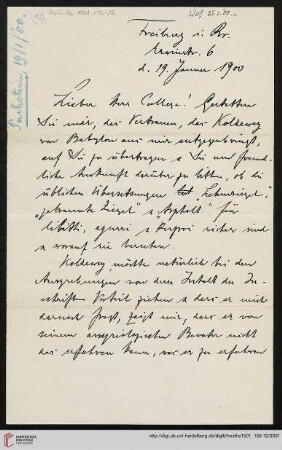 Freiburg i. Br.
6
d. 19. Januar 1900
Puchstein, 19/1/00.
Lieber Herr College! Gestatten
Sie mir, das Vertrauen, das Koldewey
von Babylon aus mir entgegenbringt,
auf Sie zu übertragen u Sie um freund-
liche Auskunft darüber zu bitten, ob die
üblichen Übersetzungen "Lehmziegel",
"gebrannte Ziegel" u Asphalt für
libitti, agurri u kupri sicher sind
u worauf sie beruhen.
Koldewey möchte natürlich bei den
Ausgrabungen von dem Inhalt der In-
schriften Vorteil ziehen u dass er mich
darnach fragt, zeigt mir, dass er von
seinem assyriologischen Berater nicht
das erfahren kann, was er zu erfahren
http://digi.ub.uni-heidelberg.de/diglit/heidhs1501_156-12/0001